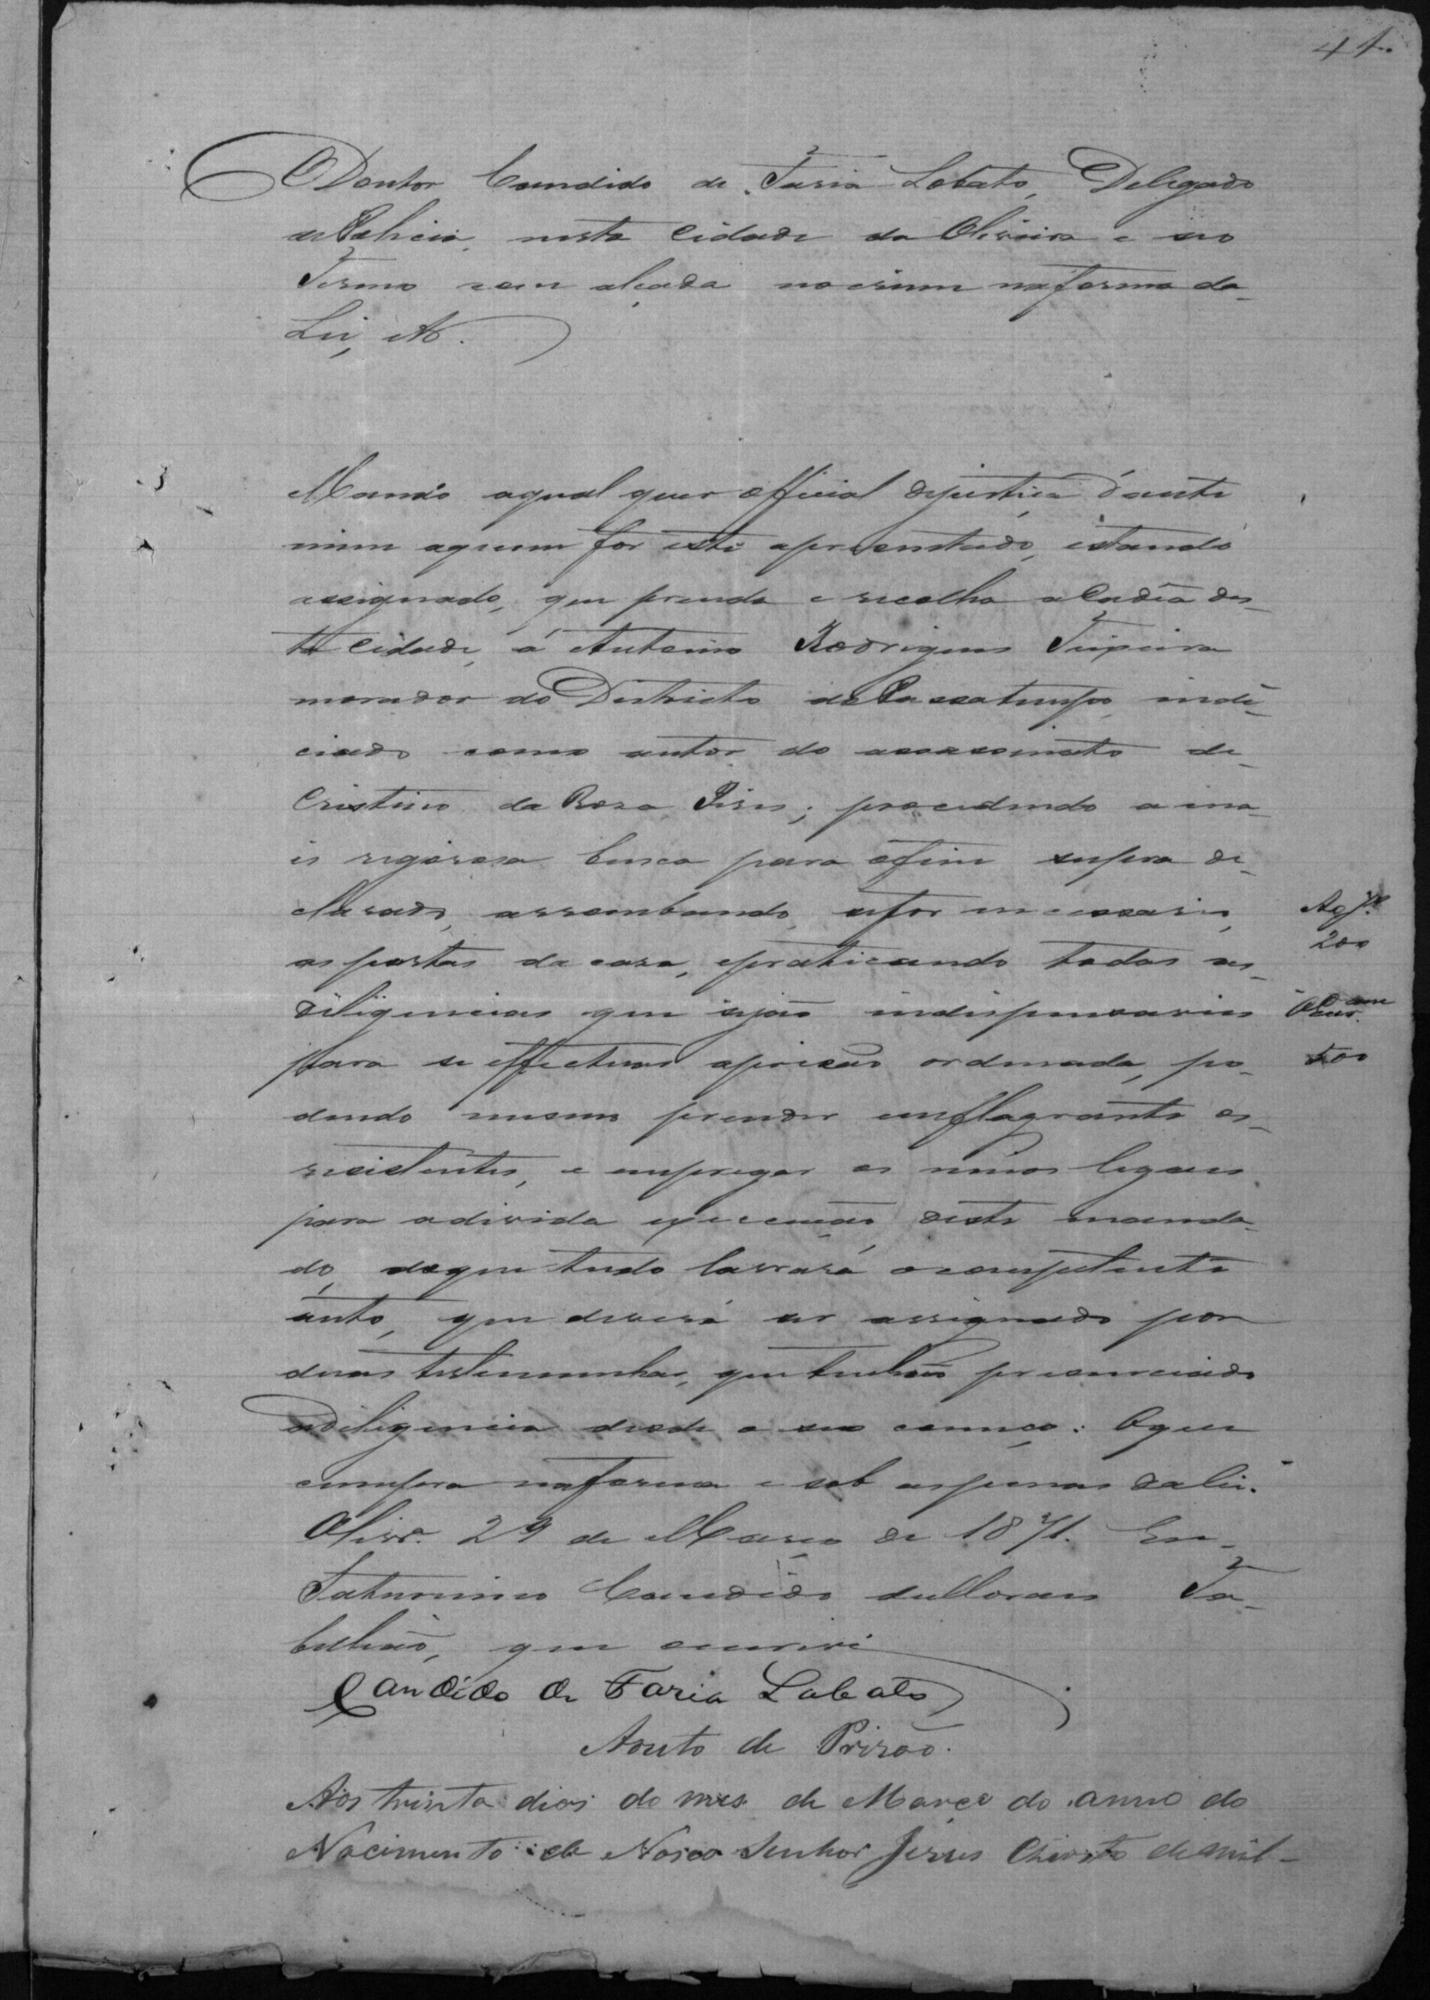 41.
O Doutor Candido de Faria Lobato, Delegado
de Policia, nesta Cidade da Oliveira e seo
Termo com alçada no crime na forma da
Lei, etc.
Mando aqual quer official dejustiça d'ante
mim aquem for este apresentado, estando
assignado, que prenda e recolha a Cadêa des-
ta Cidade, á Antonio Rodrigues Teixeira
morador do Districto de Passatempo, indi-
ciado como autor do assassinato de
Cristino da Roza Pires; procedendo a ma-
is rigorosa busca para ofim supra de-
clarado, arrombando, sefor necessario,
as portas da casa, epraticando todas as
diligencias que sejão indispensaveis
para se effectuar aprisão ordenada, po-
dendo mesmo prender emflagrante os
resistentes, e empregar os meios legaes
para adevida execução deste manda-
do, deque tudo lavrará ocompetente
auto, que deverá ser assignado por
duas testemunhas, que tenhão presenciado
adiligencia desde o seo começo: Oque
cumpra naforma e sob aspenas da lei.
Olivrª. 29 de Março de 1871. Eu
Saturnino Candido de Moraes Ta-
bellião, que escrevi
Candido de Faria Lobato
Auto de Prizão.
Aos trinta dias do mes de Março do anno do
Nacimento de Nosso Senhor Jesus Christo de mil
200